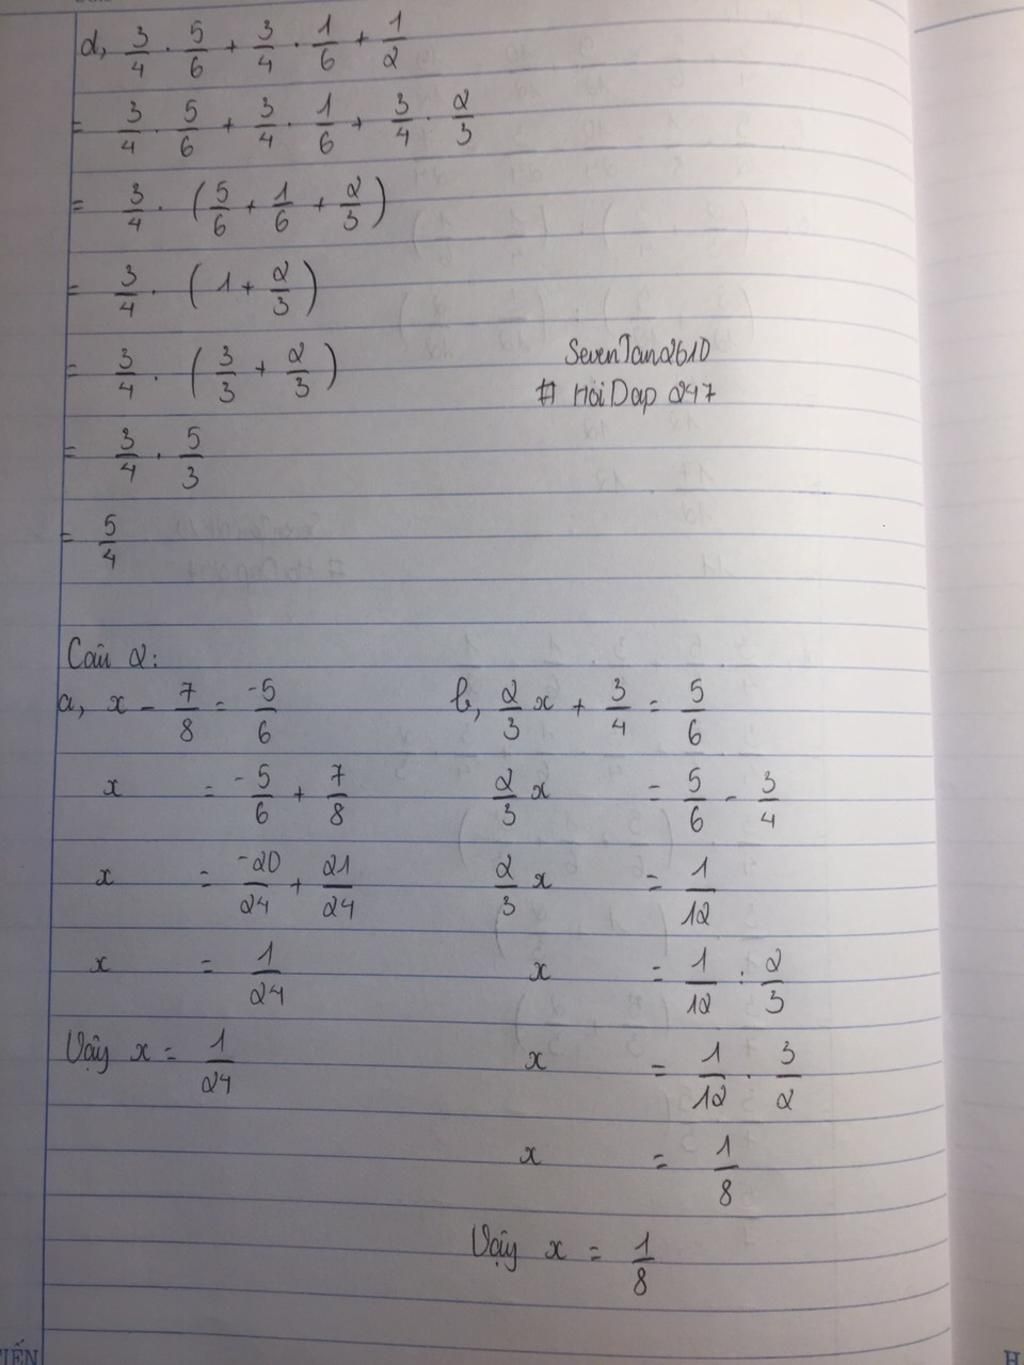 d, 3/4 . 5/6 + 3/4 . 1/6 + 1/2
= 3/4 . 5/6 + 3/4 . 1/6 + 3/4 . 2/3
= 3/4 . (5/6 + 1/6 + 2/3)
= 3/4 . (1 + 2/3)
= 3/4 . (3/3 + 2/3)
SevenTan2610
# HoiDap 247
= 3/4 . 5/3
= 5/4
Câu 2:
a, x - 7/8 = -5/6
x = -5/6 + 7/8
x = -20/24 + 21/24
x = 1/24
Vậy x = 1/24
b, 2/3 x + 3/4 = 5/6
2/3 x = 5/6 - 3/4
2/3 x = 1/12
x = 1/12 : 2/3
x = 1/12 . 3/2
x = 1/8
Vậy x = 1/8
TIẾN
H